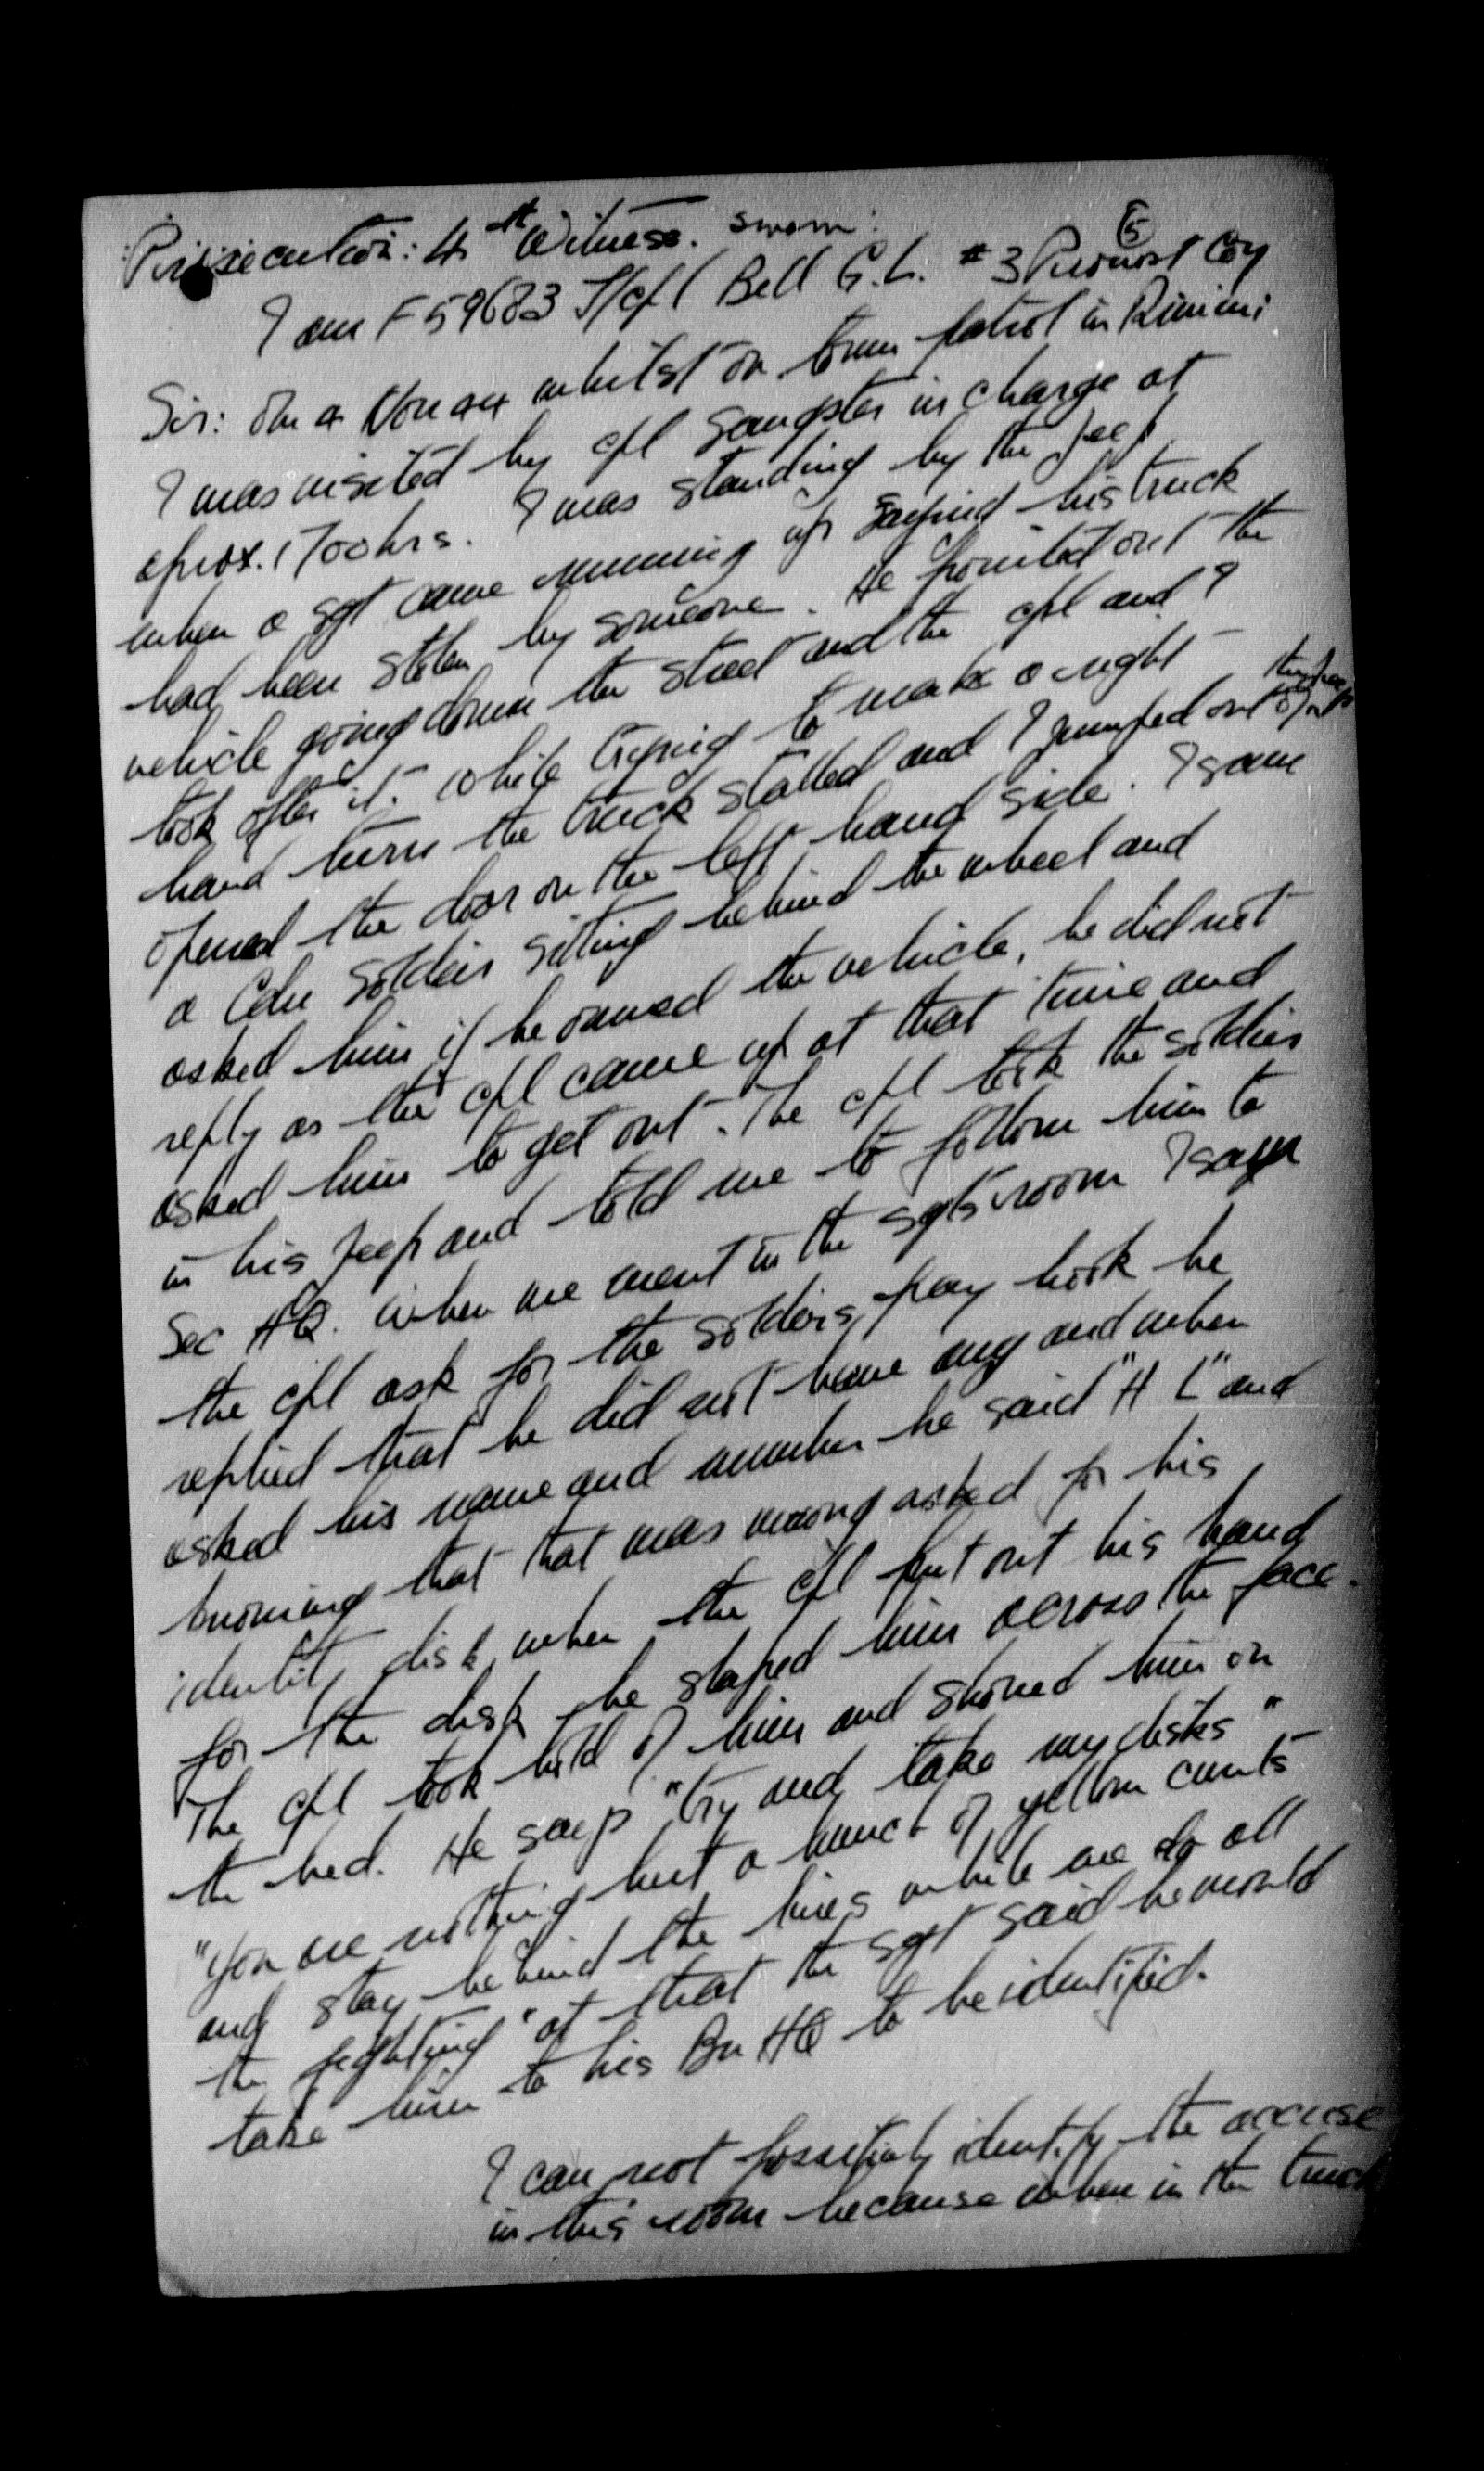 Prosecution: 4th Witness. sworn:
5
I am F59683 L/Cpl Bell G.L. #3 Provost Coy
Sir: On 4 Nov 44 whilst on town patrol in Rimini
I was visited by cpl Sangster in charge at
aprox. 1700 hrs. I was standing by the jeep
when a sgt came running up saying his truck
had been stolen by someone. He pointed out the
vehicle going down the street and the cpl and I
took after it. While trying to make a right
hand turn the truck stalled and I jumped out of the jeep
opened the door on the left hand side. I saw
a Cdn soldier sitting behind the wheel and
asked him if he owned the vehicle, he did not
reply as the cpl came up at that time and
asked him to get out. The cpl took the soldier
in his jeep and told me to follow him to
Sec HQ. when we went in the sgts room I saw
the cpl ask for the soldiers pay book he
replied that he did not have any and when
asked his name and number he said "H L" and
knowing that that was wrong asked for his
identity disk, when the cpl put out his hand
for the disk he slaped him across the face.
The cpl took hold of him and shoved him on
the bed. He says "try and take my disks"
"you are nothing but a bunch of yellow cunts
and stay behind the lines while we do all
the fighting" at that the sgt said he would
take him to his Bn HQ to be identified.
I can not possitively identify the accuse
in this room because when in the truck